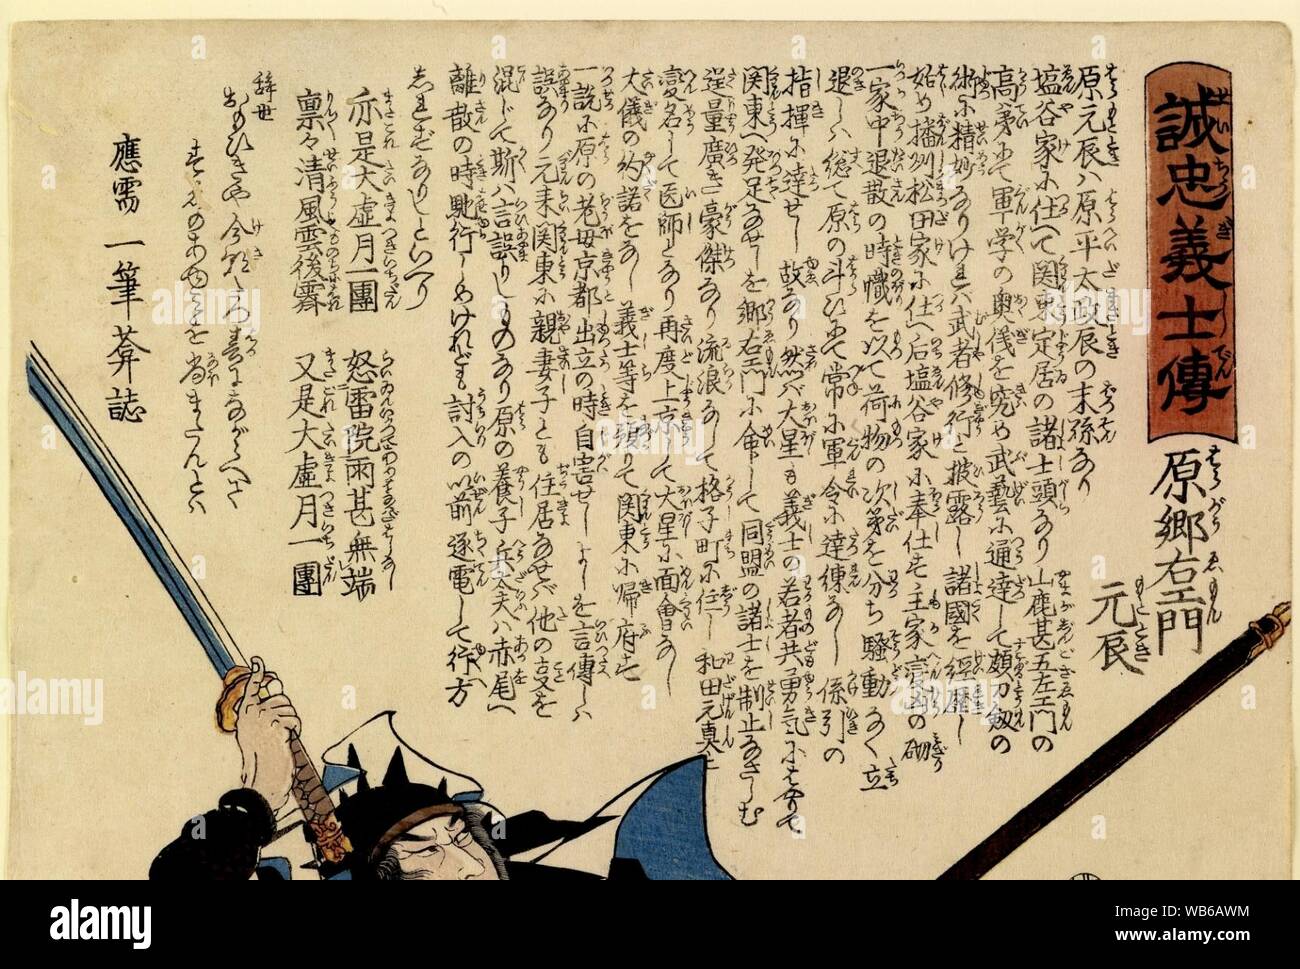 誠忠義士傳
原郷右エ門
元辰
原元辰ハ原平太政辰の末孫なり
塩谷家に仕へて関東定居の諸士頭なり山鹿甚五左エ門の
高弟にて軍学の奥儀を究め武藝に通達して頗刀剱の
術に精妙なりければ武者修行と披露し諸國を経歴し
始め播州松田家に仕へ后塩谷家に奉仕す主家
一家中退散の時幟を以て荷物の次第を分ち騒動なく立
退しハ総て原の斗ひにて常に軍令に達練なし係引の
指揮に達せし故なり然バ大星も義士の若者共勇気にはやりて
関東へ発足なせしを郷右エ門に命して同盟の諸士を制止なさしむ
逞量廣き豪傑なり流浪なして格子町に住し和田元真と
変名して医師となり再度上京して大星に面會なし
大儀の約諾をなし義士等を頭りて関東に帰府す
一説に原の老母京都出立の時自害せしよしを言傳しハ
誤なり元来関東に親妻子とも住居なせバ他の支を
混じて斯ハ言誤りしものなり原の養子兵太夫ハ赤尾へ
離散の時馳行しめけれども討入の以前逐電して行方
しれずなりしといへり
亦是大虚月一團 怒雷院雨甚無端
禀々清風雲後霽 又是大虚月一團
辞世
應需一筆莽誌
alamy
Image ID: WB6AWM
www.alamy.com